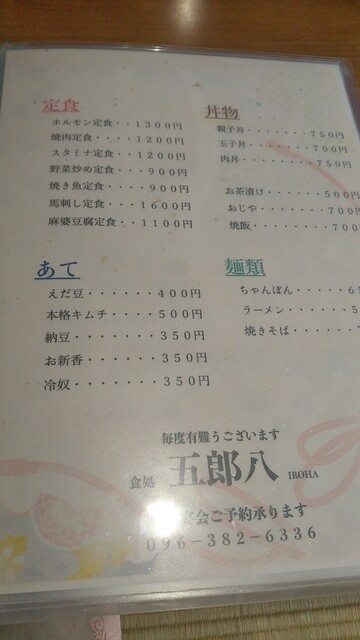 定食
ホルモン定食・・1300円
焼肉定食・・・・1200円
スタミナ定食・・1200円
野菜炒め定食・・・900円
焼き魚定食・・・・900円
馬刺し定食・・・1600円
麻婆豆腐定食・・1100円
丼物
親子丼・・・・・・・750円
玉子丼・・・・・・・700円
肉丼・・・・・・・・750円
お茶漬け・・・・・・500円
おじや・・・・・・・700
焼飯・・・・・・・・700
あて
えだ豆・・・・・・・400円
本格キムチ・・・・500円
納豆・・・・・・・・350円
お新香・・・・・・・350円
冷奴・・・・・・・・350円
麺類
ちゃんぽん・・・・・6
ラーメン・・・・・・5
焼きそば・・・・・・
毎度有難うございます
食処 五郎八 IROHA
会ご予約承ります
096-382-6336